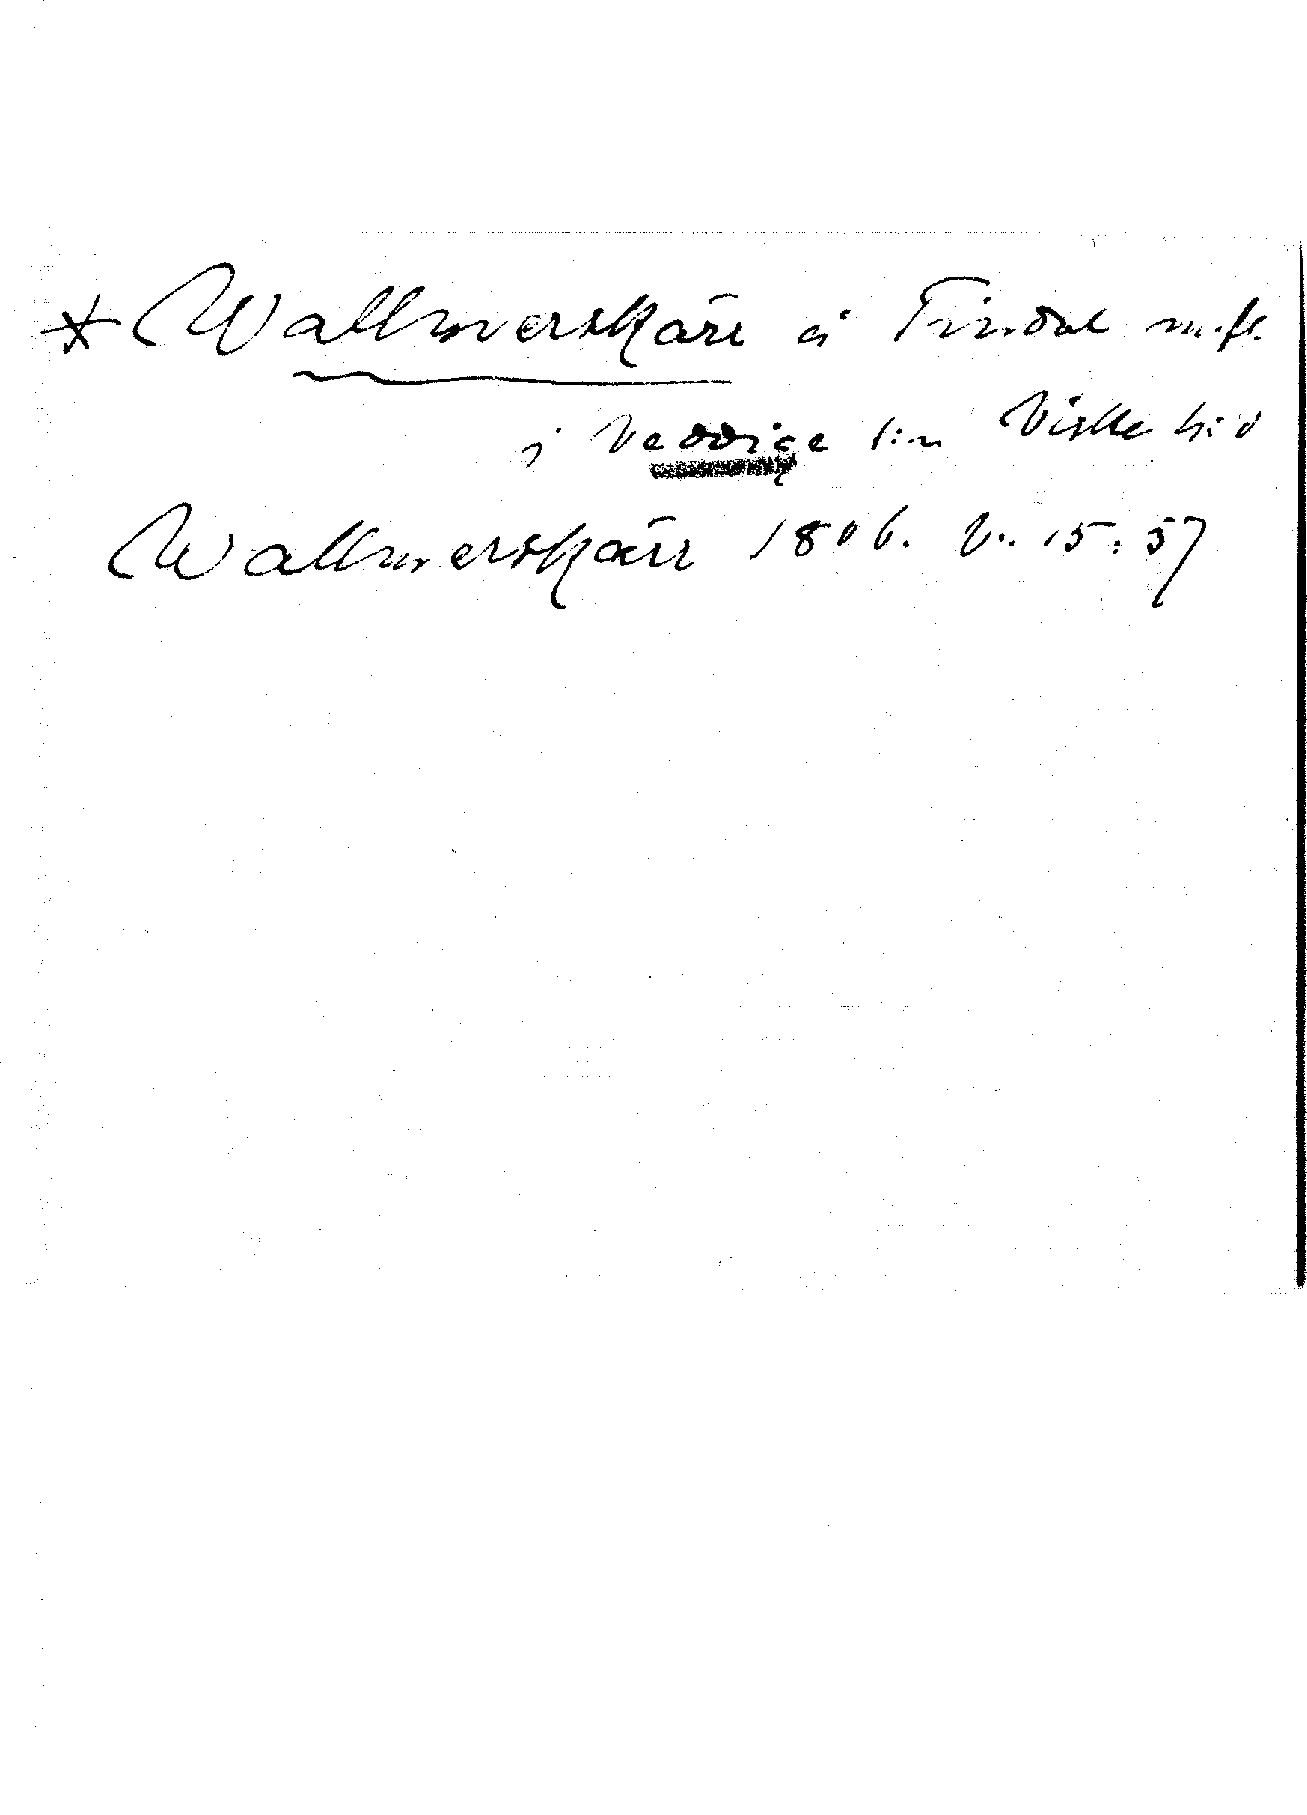 * Wallmerskärr å Tirrdal m.fl.
i Veddige s:n Viske h:d
Wallmerskärr 1806. V. 15:57